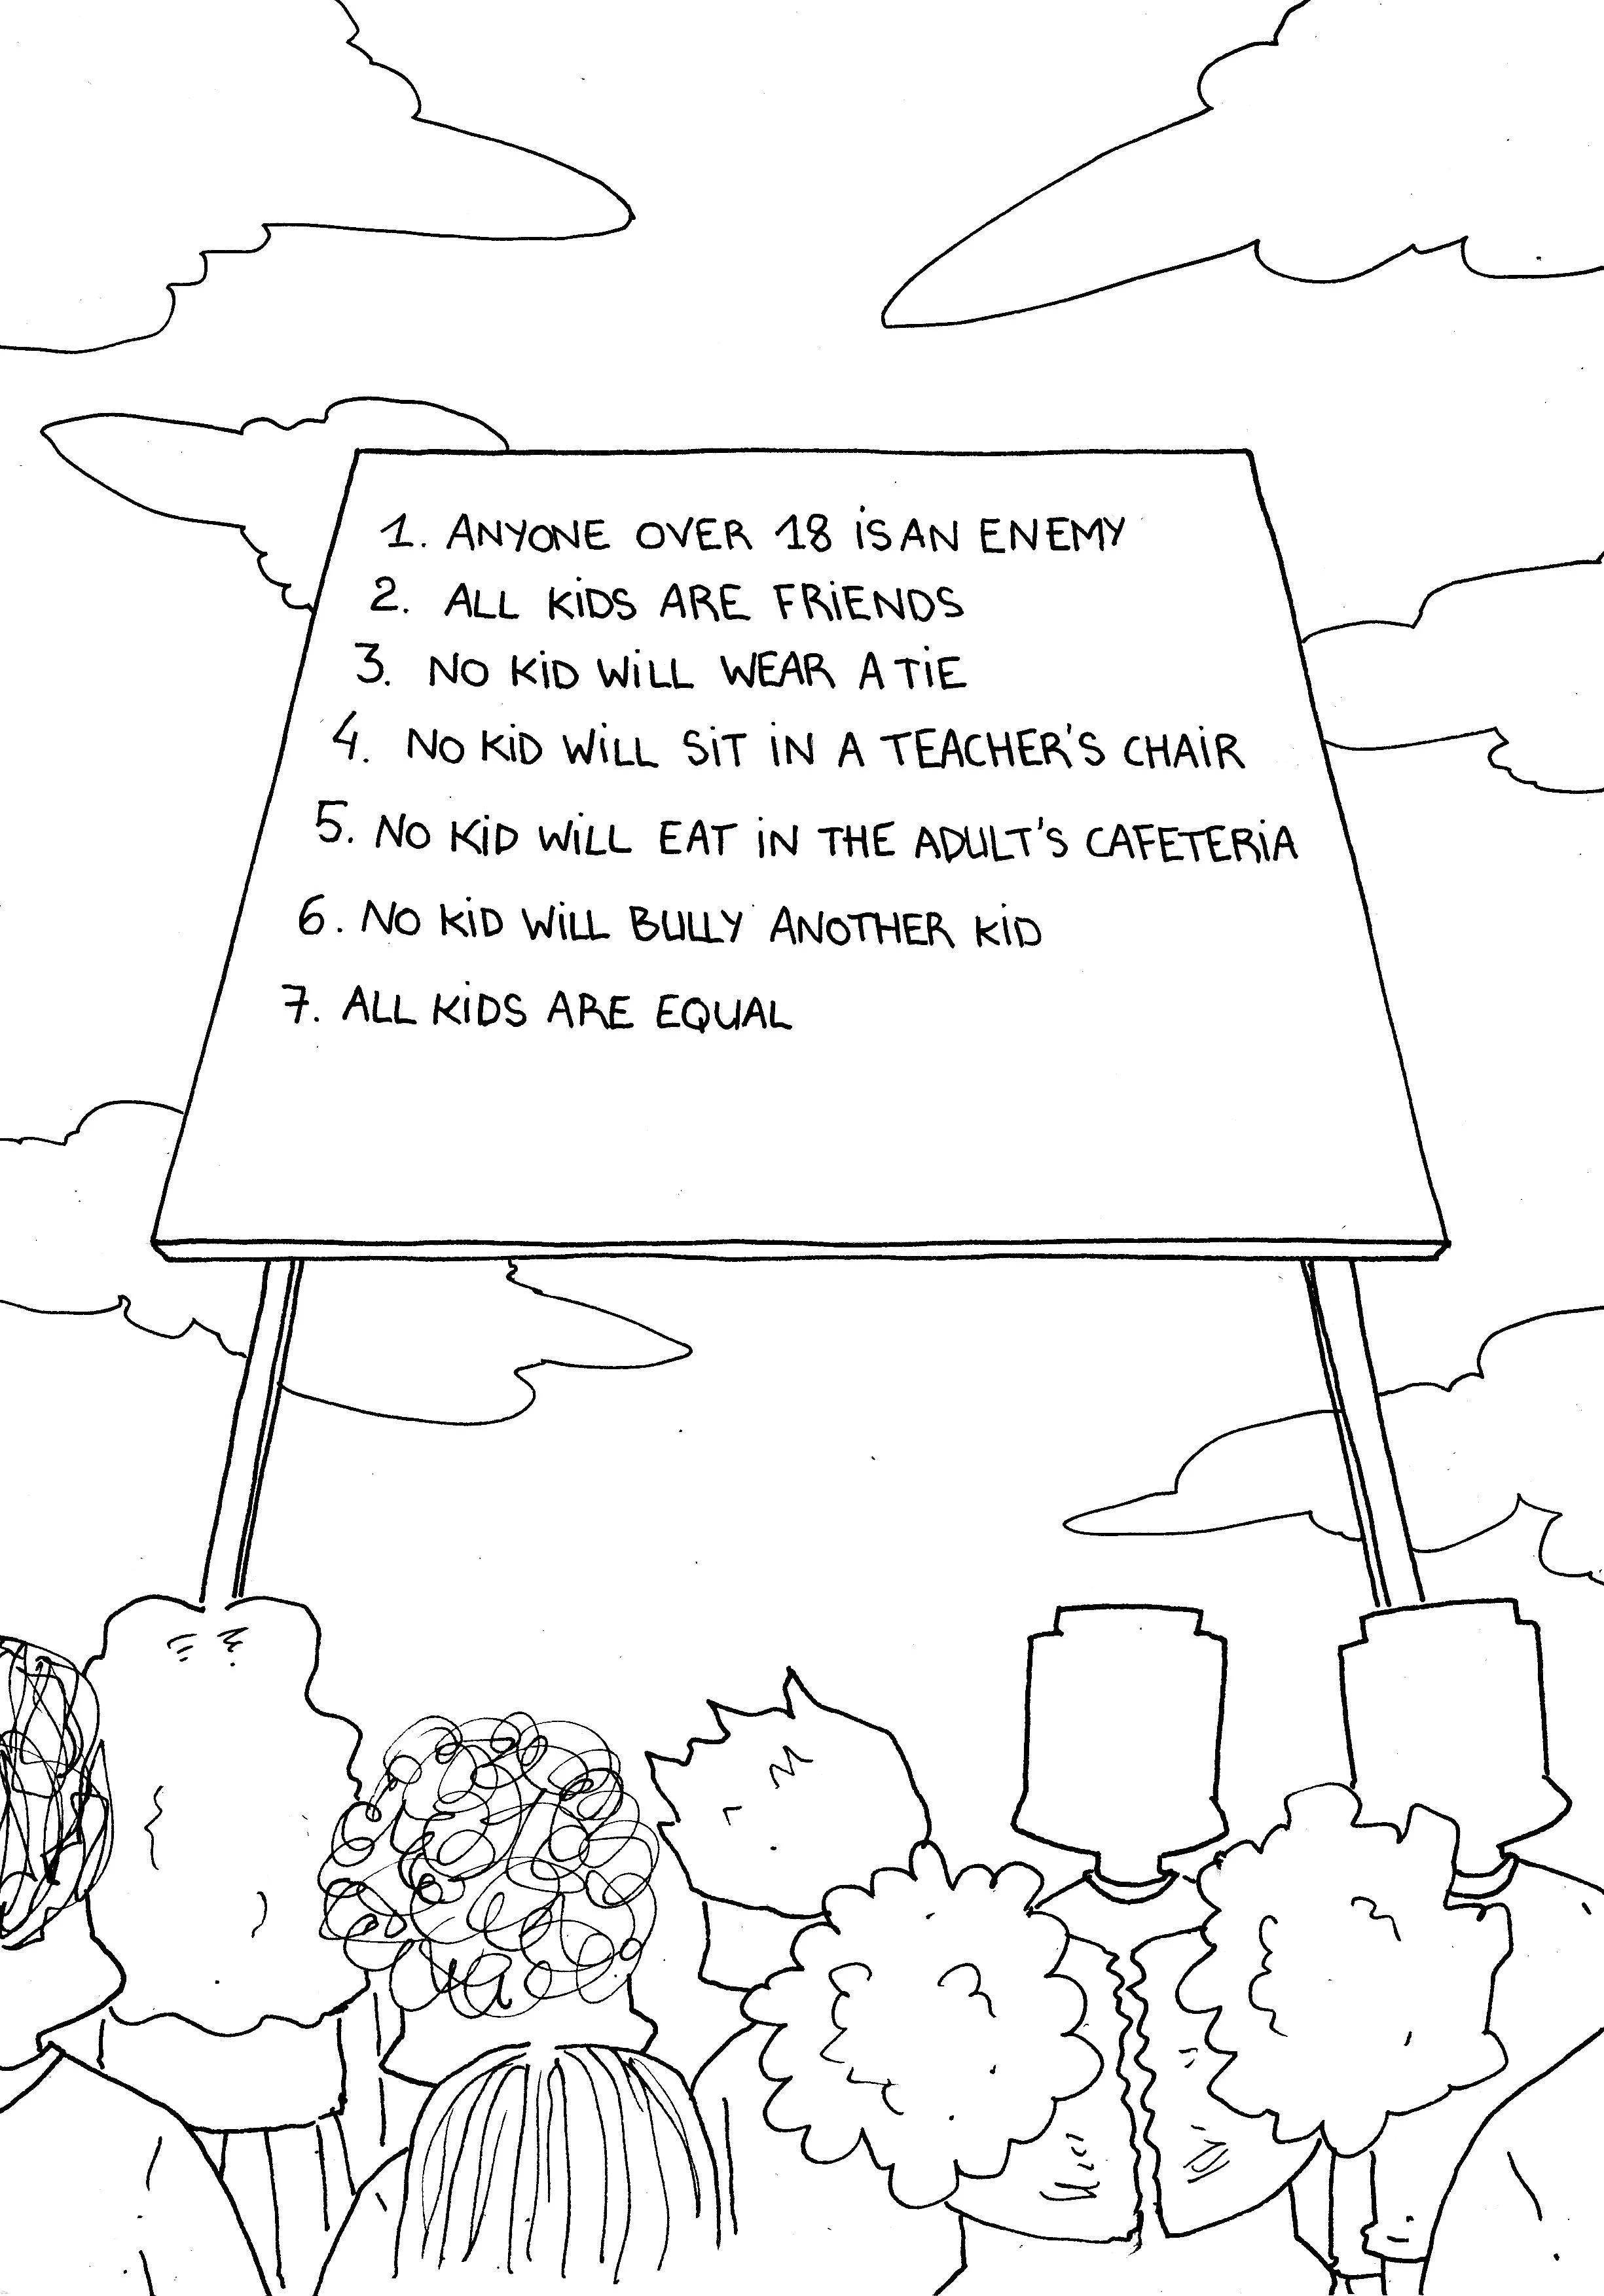 1. ANYONE OVER 18 iS AN ENEMY
2. ALL KiDS ARE FRiENDS
3. NO KiD WiLL WEAR A TiE
4. NO KiD WiLL SiT iN A TEACHER'S CHAiR
5. NO KiD WiLL EAT iN THE ADULT'S CAFETERiA
6. NO KiD WiLL BULLY ANOTHER KiD
7. ALL KiDS ARE EQUAL